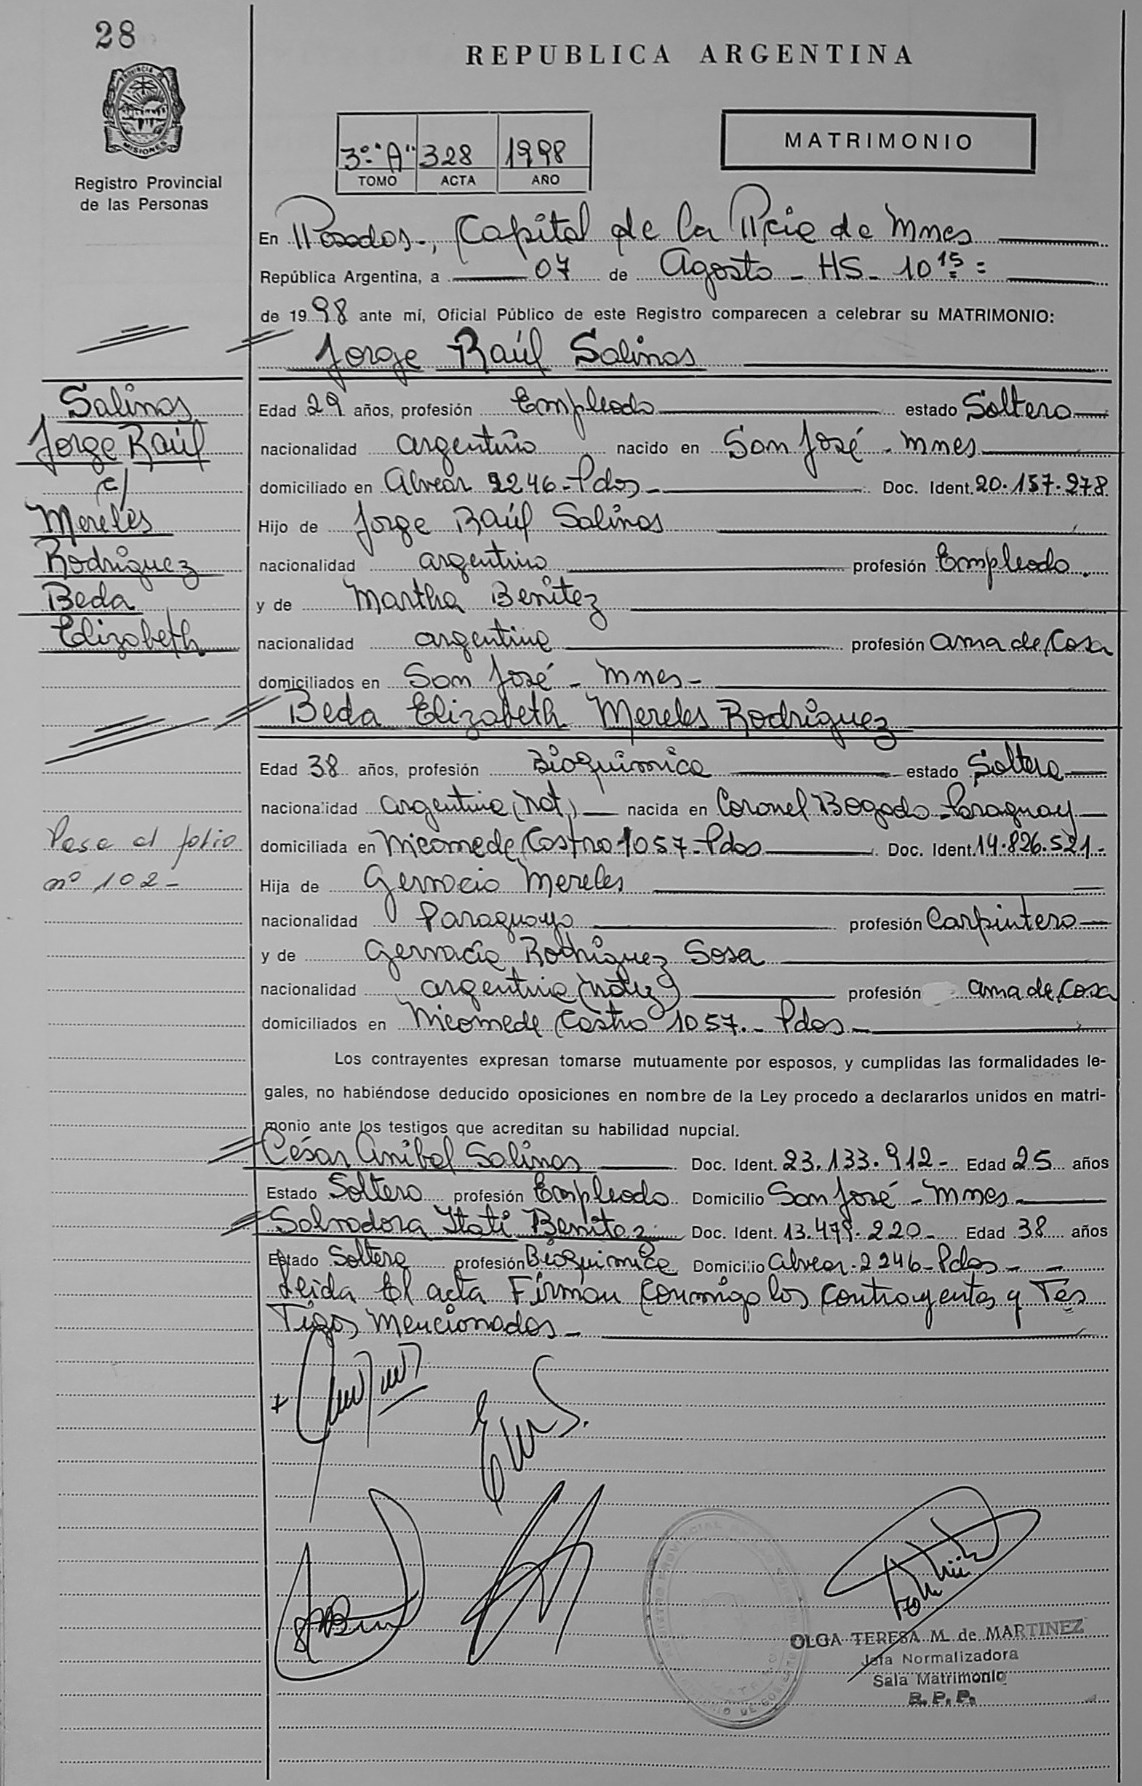 28
REPUBLICA ARGENTINA
PROVINCIA DE MISIONES
Registro Provincial
de las Personas
3º "A" 328 1998
TOMO ACTA AÑO
MATRIMONIO
En Posadas, Capital de la Pcia de Mnes
República Argentina, a 07 de Agosto - HS - 10 15 =
de 1998 ante mí, Oficial Público de este Registro comparecen a celebrar su MATRIMONIO:
Jorge Raúl Salinas
Salinas
Jorge Raúl
c/
Mereles
Rodríguez
Beda
Elizabeth
Edad 29 años, profesión Empleado estado Soltero
nacionalidad argentino nacido en San José - Mnes
domiciliado en Alvear 2246 - Pdas - Doc. Ident. 20.157.278
Hijo de Jorge Raúl Salinas
nacionalidad argentino profesión Empleado.
y de Martha Benitez
nacionalidad argentina profesión ama de Casa
domiciliados en San José - Mnes -
Beda Elizabeth Mereles Rodríguez
Edad 38 años, profesión Bioquimica estado Soltera
nacionalidad argentina (nat.) nacida en Coronel Bogado - Paraguay
domiciliada en Nicomede Castro 1057 - Pdas Doc. Ident. 14.826.521 -
Pasa al folio
nº 102 -
Hija de Gervacio Mereles
nacionalidad Paraguayo profesión Carpintero
y de Gervacia Rodríguez Sosa
nacionalidad argentina profesión ama de Casa
domiciliados en Nicomede Castro 1057 - Pdas -
Los contrayentes expresan tomarse mutuamente por esposos, y cumplidas las formalidades le-
gales, no habiéndose deducido oposiciones en nombre de la Ley procedo a declararlos unidos en matri-
monio ante los testigos que acreditan su habilidad nupcial.
César Anibal Salinas Doc. Ident. 23.133.912 - Edad 25 años
Estado Soltero profesión Empleado Domicilio San José - Mnes -
Salvadora Itatí Benitez Doc. Ident. 13.479.220 - Edad 38 años
Estado Soltera profesión Bioquimica Domicilio Alvear 2246 - Pdas -
Leida El acta Firman Conmigo los Contrayentes y Tes
Tigos Mencionados -
OLGA TERESA M. de MARTINEZ
Jefa Normalizadora
Sala Matrimonio
R. P. P.